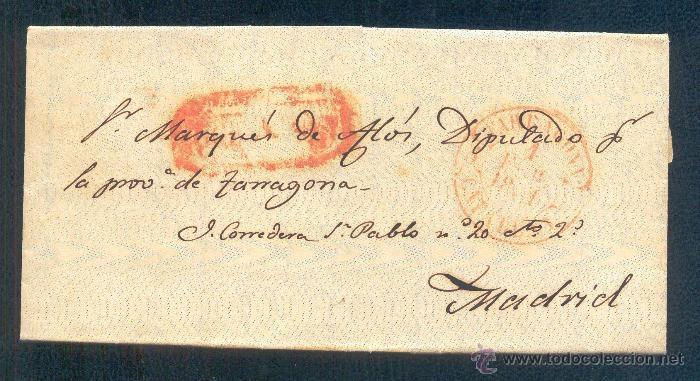 Sr. Marqués de Alós, Diputado pr.
la prova. de Tarragona
J. Corredera Sn. Pablo nº. 20 cto. 2º
Madrid
todocoleccion
www.todocoleccion.net